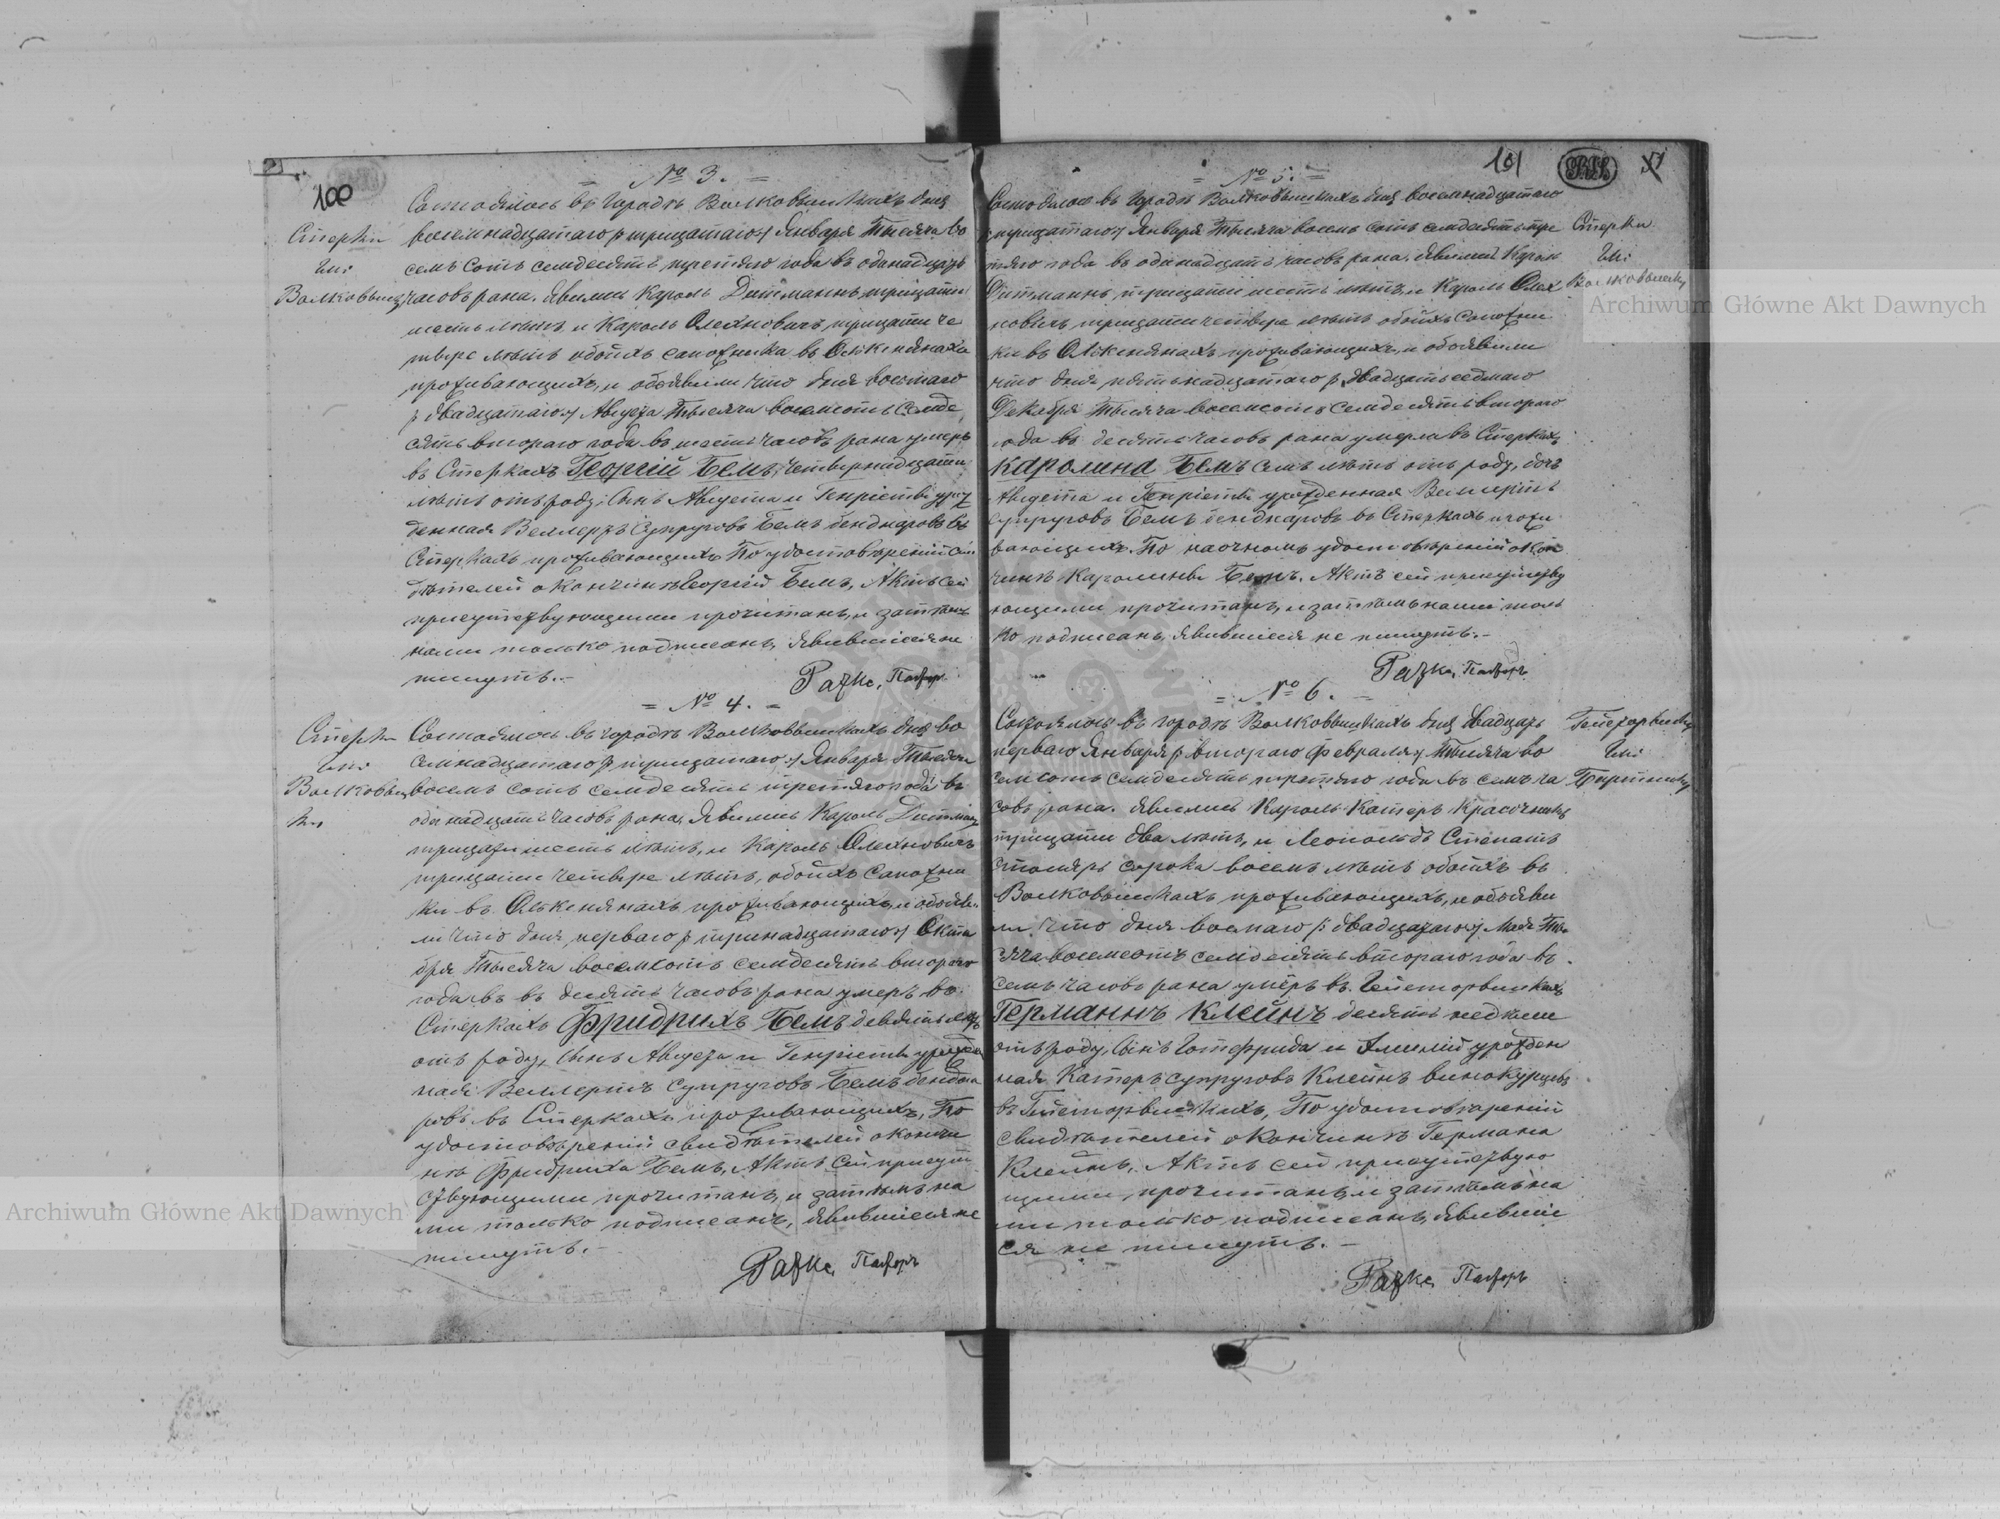 100
= № 3. =
Стерки
Гм:
Волковышки
Состоялось въ городѣ Волковышкахъ дня
восемнадцатаго /: тридцатаго :/ Января Тысяча во
семь сотъ семдесятъ третяго года въ одинадцать
часовъ рана. Явились Кароль Дитманнъ, тридцати
шесть лѣтъ, и Кароль Олехновичъ, тридцати че
тыре лѣтъ обоихъ сапожника въ Олькенянахъ
проживающихъ, и объявили что дня восьмаго
/: двадцатаго :/ Августа Тысяча восемсотъ семде
сятъ втораго года въ шесть часовъ рана умеръ
въ Стеркахъ Георгій Бемъ, четвернадцати
лѣтъ отъ роду, сынъ Августа и Генріеты урож
денная Веллертъ Супруговъ Бемъ бенднаровъ въ
Стеркахъ проживающихъ. По удостовѣреніи сви
дѣтелей о кончинѣ Георгій Бемъ, Актъ сей
присутствующими прочитанъ, и затѣмъ
нами только подписанъ, явившіеся не
пишутъ. -
Рачке, Пасторъ
= № 4. =
Стерки
Гм:
Волковыш
ки
Состоялось въ городѣ Волковышкахъ дня во
семнадцатаго /: тридцатаго :/ Января Тысяча
восемь сотъ семдесятъ третяго года въ
одинадцать часовъ рана, Явились Кароль Дитманнъ
тридцати шесть лѣтъ, и Кароль Олехновичъ
тридцати четыре лѣтъ, обоихъ Сапожни
ки въ Олькенянахъ проживающихъ, и объяви
ли что дня, перваго /: тринадцатаго :/ Октя
бря Тысяча восемсотъ семдесятъ втораго
года въ въ десять часовъ рана умеръ во
Стеркахъ Фридрихъ Бемъ девять лѣтъ
отъ роду, сынъ Августа и Генріеты урожден
ная Веллертъ Супруговъ Бемъ бендна
ровъ въ Стеркахъ проживающихъ, По
удостовѣреніи свидѣтелей о кончи
нѣ Фридриха Бемъ, Актъ сей присут
ствующими прочитанъ, и затѣмъ на
ми только подписанъ, явившіеся не
пишутъ. -
Рачке, Пасторъ
101
51
= № 5. =
Стерки
Гм:
Волковышки
Состоялось въ городѣ Волковышкахъ дня восемнадцатаго
/: тридцатаго :/ Января Тысяча восемь сотъ семдесятъ тре
тяго года въ одинадцать часовъ рана. Явились Кароль
Дитманнъ, тридцати шесть лѣтъ, и Кароль Олех
новичъ тридцати четыре лѣтъ обоихъ Сапожни
ки въ Олькенянахъ проживающихъ, и объявили
что дня пятьнадцатаго /: двадцатьседмаго
Декабря Тысяча восемсотъ семдесятъ втораго
года въ десять часовъ рана умерла въ Стеркахъ
Каролина Бемъ семъ лѣтъ отъ роду, дочь
Августа и Генріеты урожденная Веллертъ
Супруговъ Бемъ бенднаровъ въ Стеркахъ прожи
вающихъ. По наочномъ удостовѣреніи о кон
чинѣ Каролины Бемъ. Актъ сей присутству
ющими прочитанъ, и затѣмъ нами толь
ко подписанъ, явившіеся не пишутъ. -
Рачке, Пасторъ
= № 6. =
Гм:
Состоялось въ городѣ Волковышкахъ дня двадцать
перваго Января /: втораго Февраля :/ Тысяча во
семсотъ семдесятъ третяго года въ семъ ча
совъ рана. Явились Кароль Катеръ Красочникъ
тридцати два лѣтъ, и Леопольдъ Степатъ
столяръ сорока восемъ лѣтъ обоихъ въ
Волковышкахъ проживающихъ, и объяви
ли что дня восмаго /: двадцатаго :/ Мая Ты
сяча восемсотъ семдесятъ втораго года въ
семъ часовъ рана умеръ въ
Германнъ Клейнъ десять недѣли
отъ роду, сынъ Готфрида и Амилій урожден
ная Катеръ супруговъ Клейнъ винокурцевъ
По удостовѣреніи
свидѣтелей о кончинѣ Германа
Клейнъ, Актъ сей присутствую
щими, прочитанъ и затѣмъ на
ми только подписанъ, явившіе
ся не пишутъ. -
Рачке, Пасторъ
Archiwum Główne Akt Dawnych
Archiwum Główne Akt Dawnych